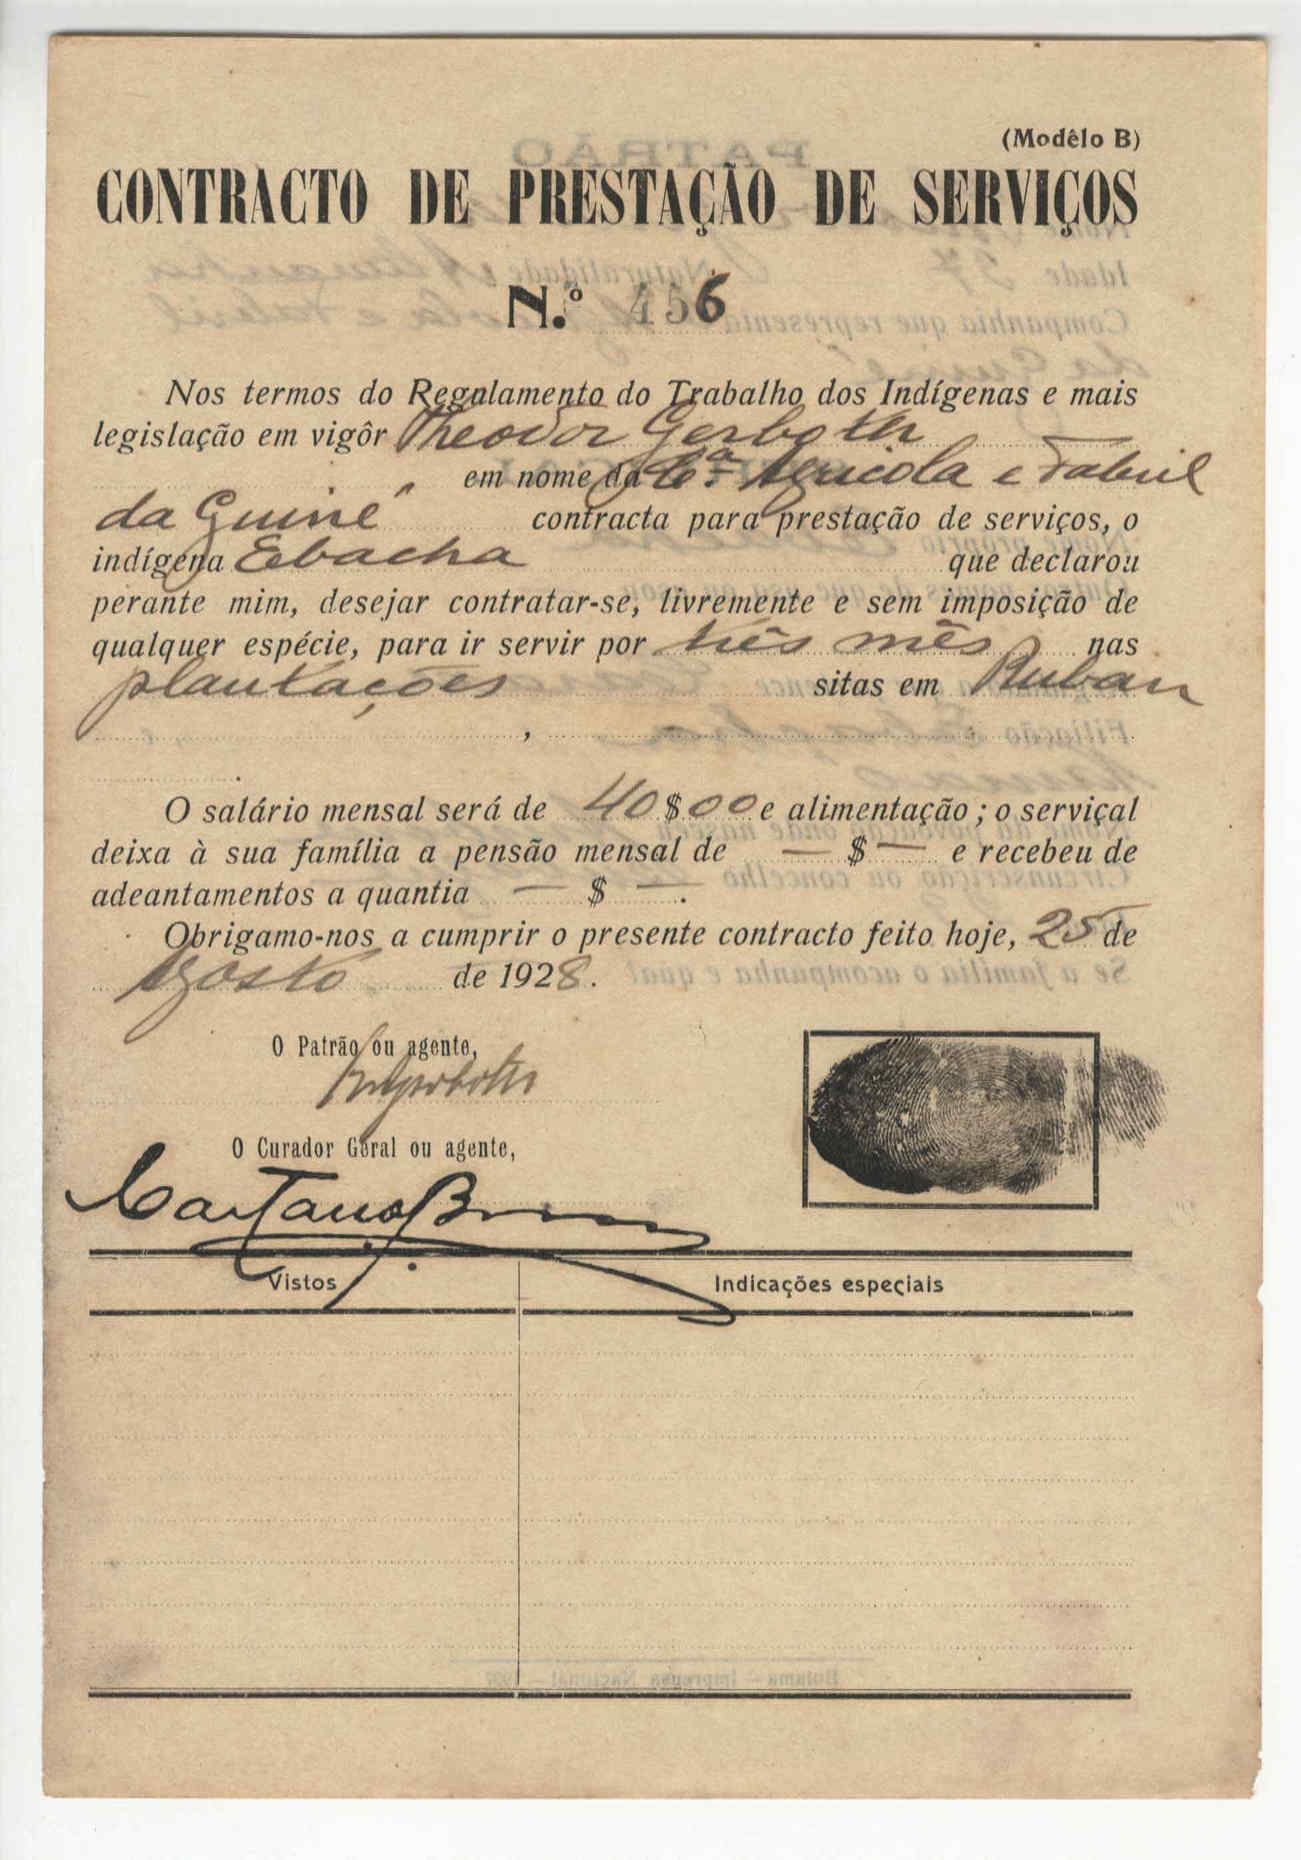 (Modêlo B)
CONTRACTO DE PRESTAÇÃO DE SERVIÇOS
N.º 456
Nos termos do Regulamento do Trabalho dos Indígenas e mais
legislação em vigôr Theodor Gerboth
em nome da Cª. Agricola e Fabril
da Guiné contracta para prestação de serviços, o
indígena Ebacha que declarou
perante mim, desejar contratar-se, livremente e sem imposição de
qualquer espécie, para ir servir por três mês nas
plantações sitas em Ruban
,
.
O salário mensal será de 40$00 e alimentação; o serviçal
deixa à sua família a pensão mensal de — $ — e recebeu de
adeantamentos a quantia — $ — .
Obrigamo-nos a cumprir o presente contracto feito hoje, 25 de
Agosto de 1928.
O Patrão ou agente,
O Curador Geral ou agente,
Caetano
Vistos Indicações especiais